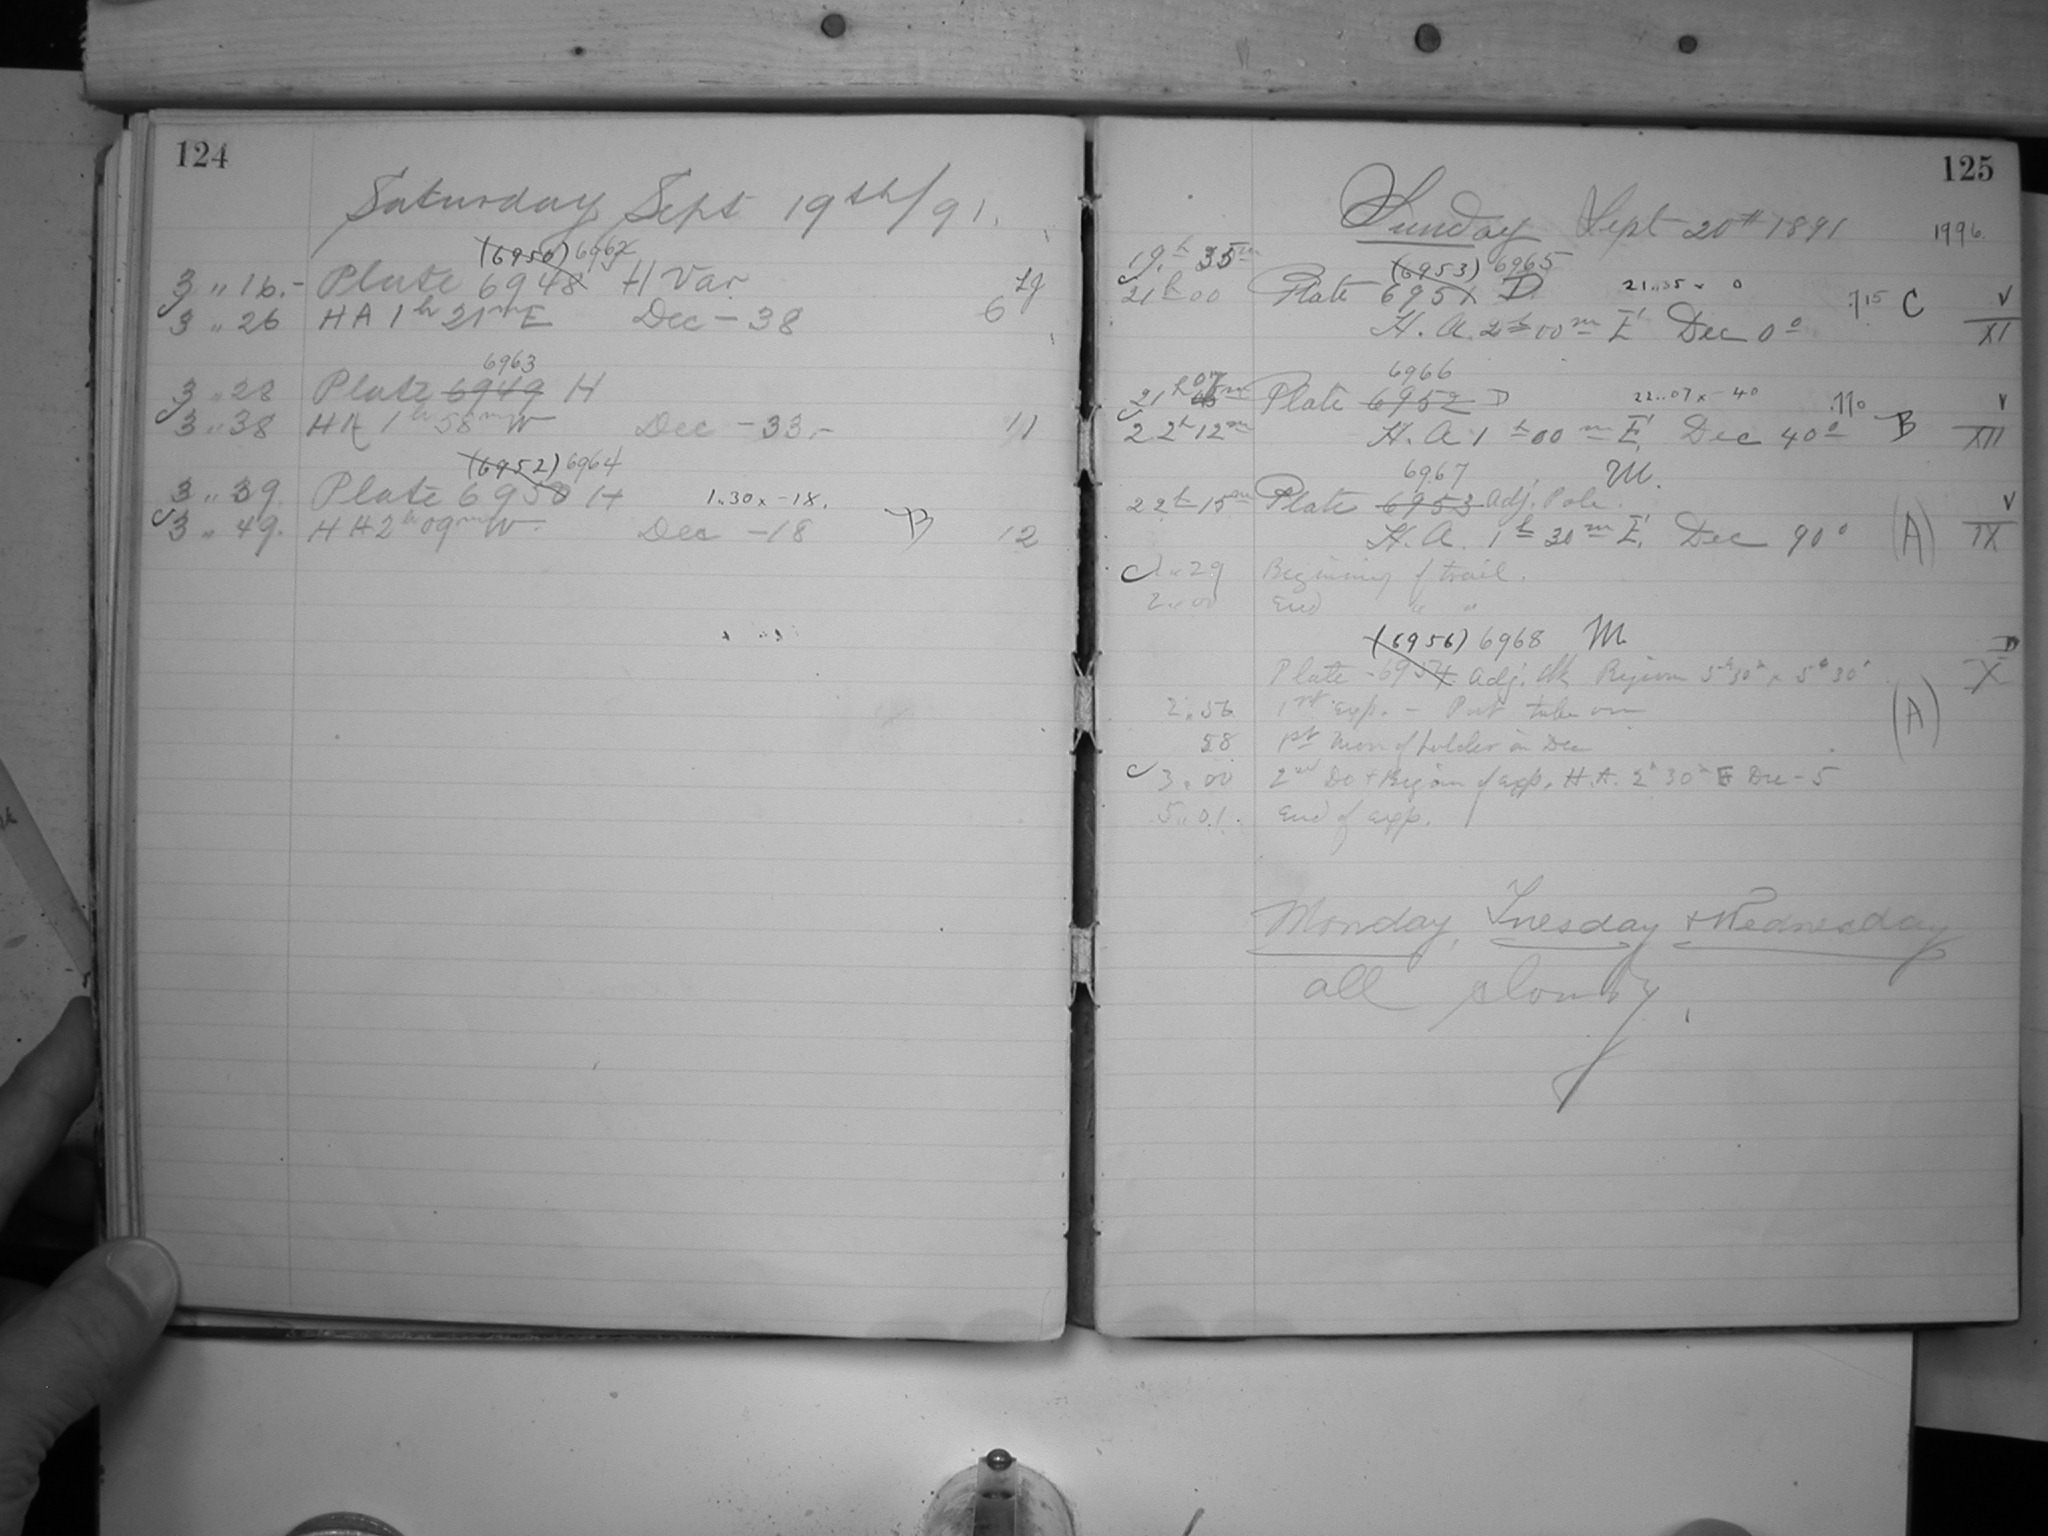 124
Saturday Sept 19th/91.
(6950) 6962
3 ,, 16.- Plate 6948 H Var
3 ,, 26 HA 1hr 21m E Dec - 38 6
6963
3 ,, 28 Plate 6949 H
3 ,, 38 HA 1hr 58m W Dec - 33.- 11
(6952) 6964
3 ,, 39 Plate 6950 H 1..30 x -18.
3 ,, 49. HA 2hr 09m W Dec -18 B 12
125
Sunday Sept 20th 1891 1996.
19h 35m (6953) 6965
21h 00 Plate 6951 D 21..35 x 0 .715 C V
H. A. 2h 00m E Dec 0° XI
6966
21h 07m Plate 6952 D 22..07 x - 40 .710 V
22h 12m H. A. 1h 00m E. Dec 40° B XII
6967 M.
22h 15m Plate 6953 Adj. Pole. V
H. A. 1h 30m E. Dec 90° (A) IX
1..29 Beginning of trail.
2..00 End " "
(6956) 6968 M
Plate 6954 Adj. Region 5h 30m x 5° 30' X
2..56 1st exp. - Put tube on (A)
58 1st Mov. of holder in Dec
3..00 2nd Do + Begin of exp. H.A. 2h 30m E Dec - 5
5..01. End of exp.
Monday, Tuesday + Wednesday
all cloudy.